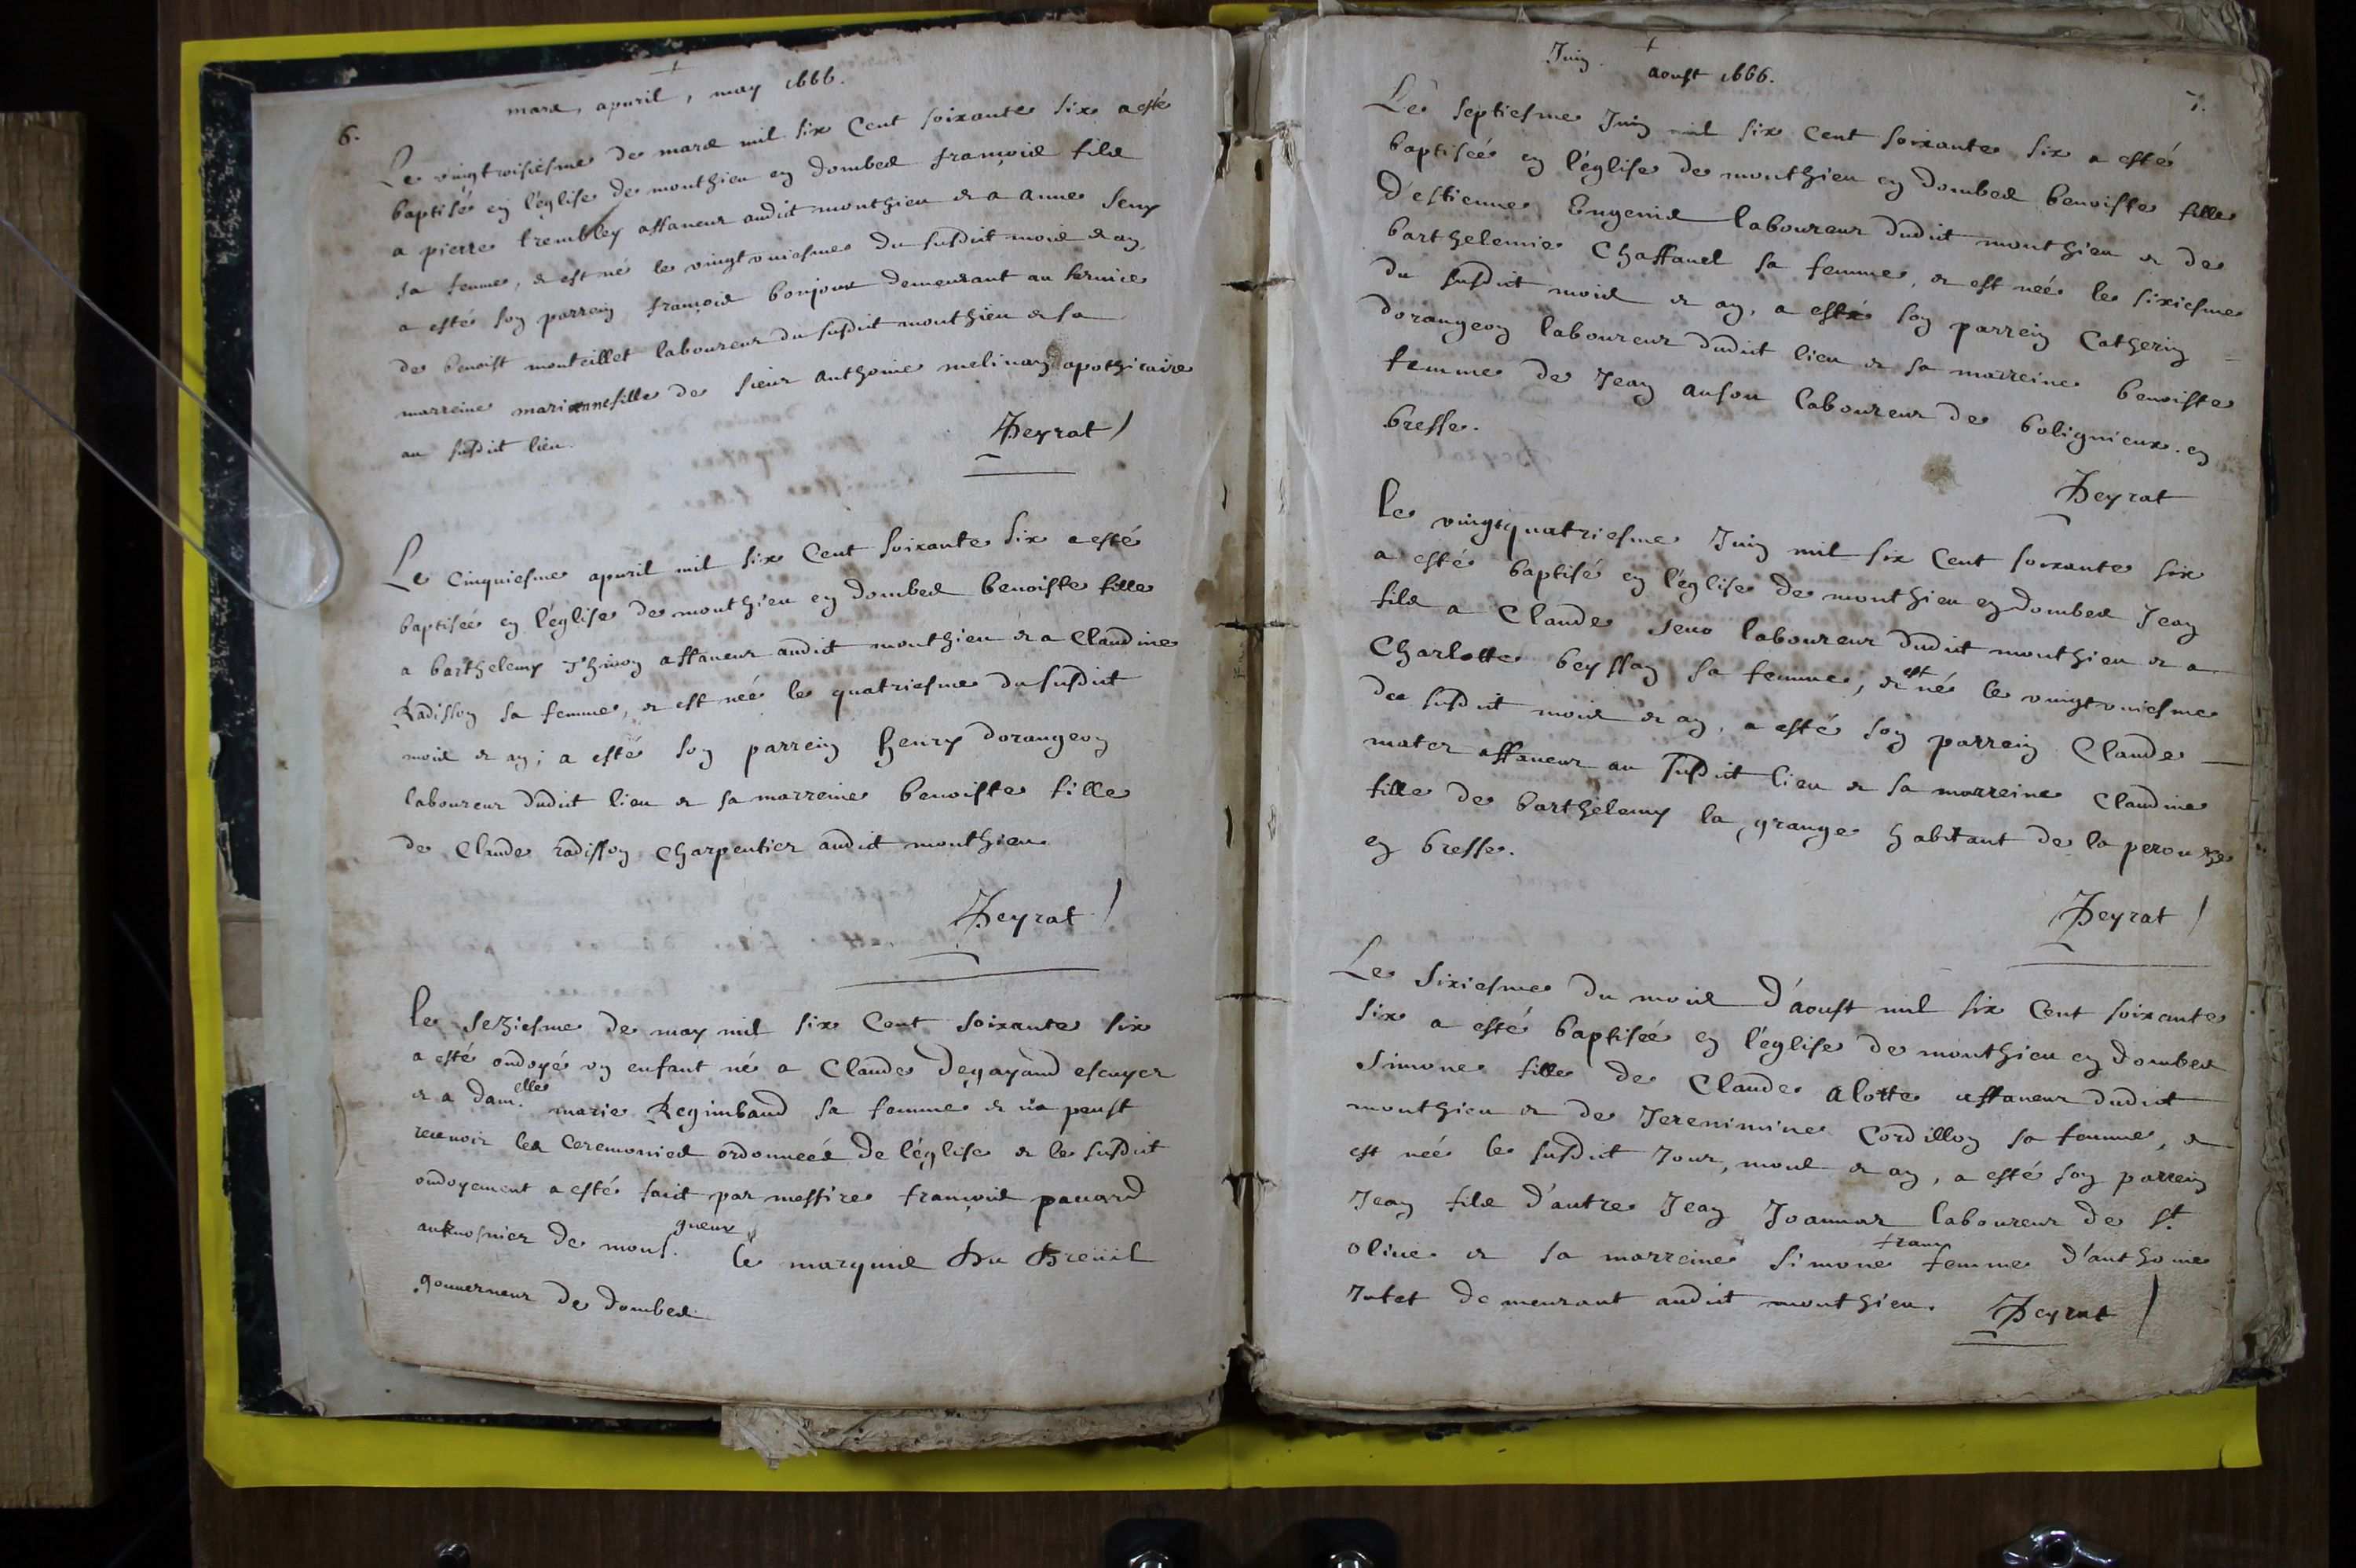 mars, apuril, may 1666.
6.
Le vingtroisiesme de mars mil six Cent soixante six a esté
baptisé en l'église de monthieu en dombes françois fils
a pierre trembley affaneur audit monthieu & a anne seny
sa femme, & est né le vingtuniesme du susdit mois & an,
a esté son parrein françois bonjour demeurant au seruice
de benoist monteillet laboureur du susdit monthieu & sa
marreine marianne fille de sieur anthoine melinan apothicaire
au susdit lieu.
Deyrat
Le Cinquiesme apuril mil six Cent soixante six a esté
baptisée en l'église de monthieu en dombes benoiste fille
a barthelemy Thivon affaneur audit monthieu & a Claudine
Radisson sa femme, & est née le quatriesme du susdit
mois & an; a esté son parrein henry dorangeon
laboureur dudit lieu & sa marreine benoiste fille
de Claude radisson Charpentier audit monthieu.
Deyrat
le seziesme de may mil six Cent soixante six
a esté ondoyé un enfant né a Claude Degayand escuyer
& a dam.elle marie Regimbaud sa femme & n'a peust
receuoir les Ceremonies ordonnées de l'église & le susdit
ondoyement a esté fait par messire françois pauard
aumosnier de mons.gneur le marquis Du Breüil
gouuerneur de dombes
Juin. aoust 1666.
7.
Le septiesme Juin mil six Cent soixante six a esté
baptisée en l'église de monthieu en dombes benoiste fille
D'estienne Eugenis laboureur dudit monthieu & de
barthelemie Chaffanel sa femme, & est née le sixiesme
du susdit mois & an, a esté son parrein Catherin =
dorangeon laboureur dudit lieu & sa marreine benoiste
femme de Jean ansou laboureur de bolignieux. en
bresse.
Deyrat
le vingtquatriesme Juin mil six Cent soixante six
a esté baptisé en l'église de monthieu en dombes Jean
fils a Claude seno laboureur dudit monthieu & a
Charlotte beyssan sa femme, & est né le vingtuniesme
du susdit mois & an, a esté son parrein Claude
mater affaneur au susdit lieu & sa marreine Claudine
fille de barthelemy la grange habitant de la perouze
en bresse.
Deyrat
Le sixiesme du mois d'aoust mil six Cent soixante
six a esté baptisée en l'église de monthieu en dombes
Simone fille de Claude alotte affaneur dudit
monthieu & de Jerenimine Cordillon sa femme, &
est née le susdit Jour, mois & an, a esté son parrein
Jean fils d'autre Jean Joannar laboureur de st
oliue & sa marreine Simone fran femme d'anthoine
Jutet demeurant audit monthieu. Deyrat